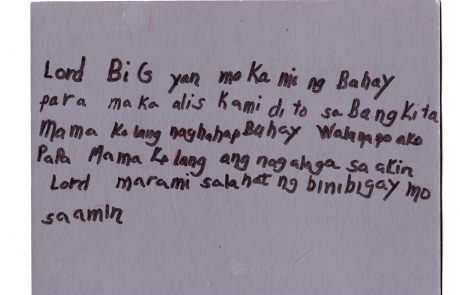 Lord BiG yan mo Ka mi ng Bahay
para maka alis Kami di to sa Bangkita
Mama Ko lang naghahap Buhay Wala na po ako
PaPa Mama Ko lang ang nagalaga sa akin
Lord marami salahat ng binibigay mo
saamin